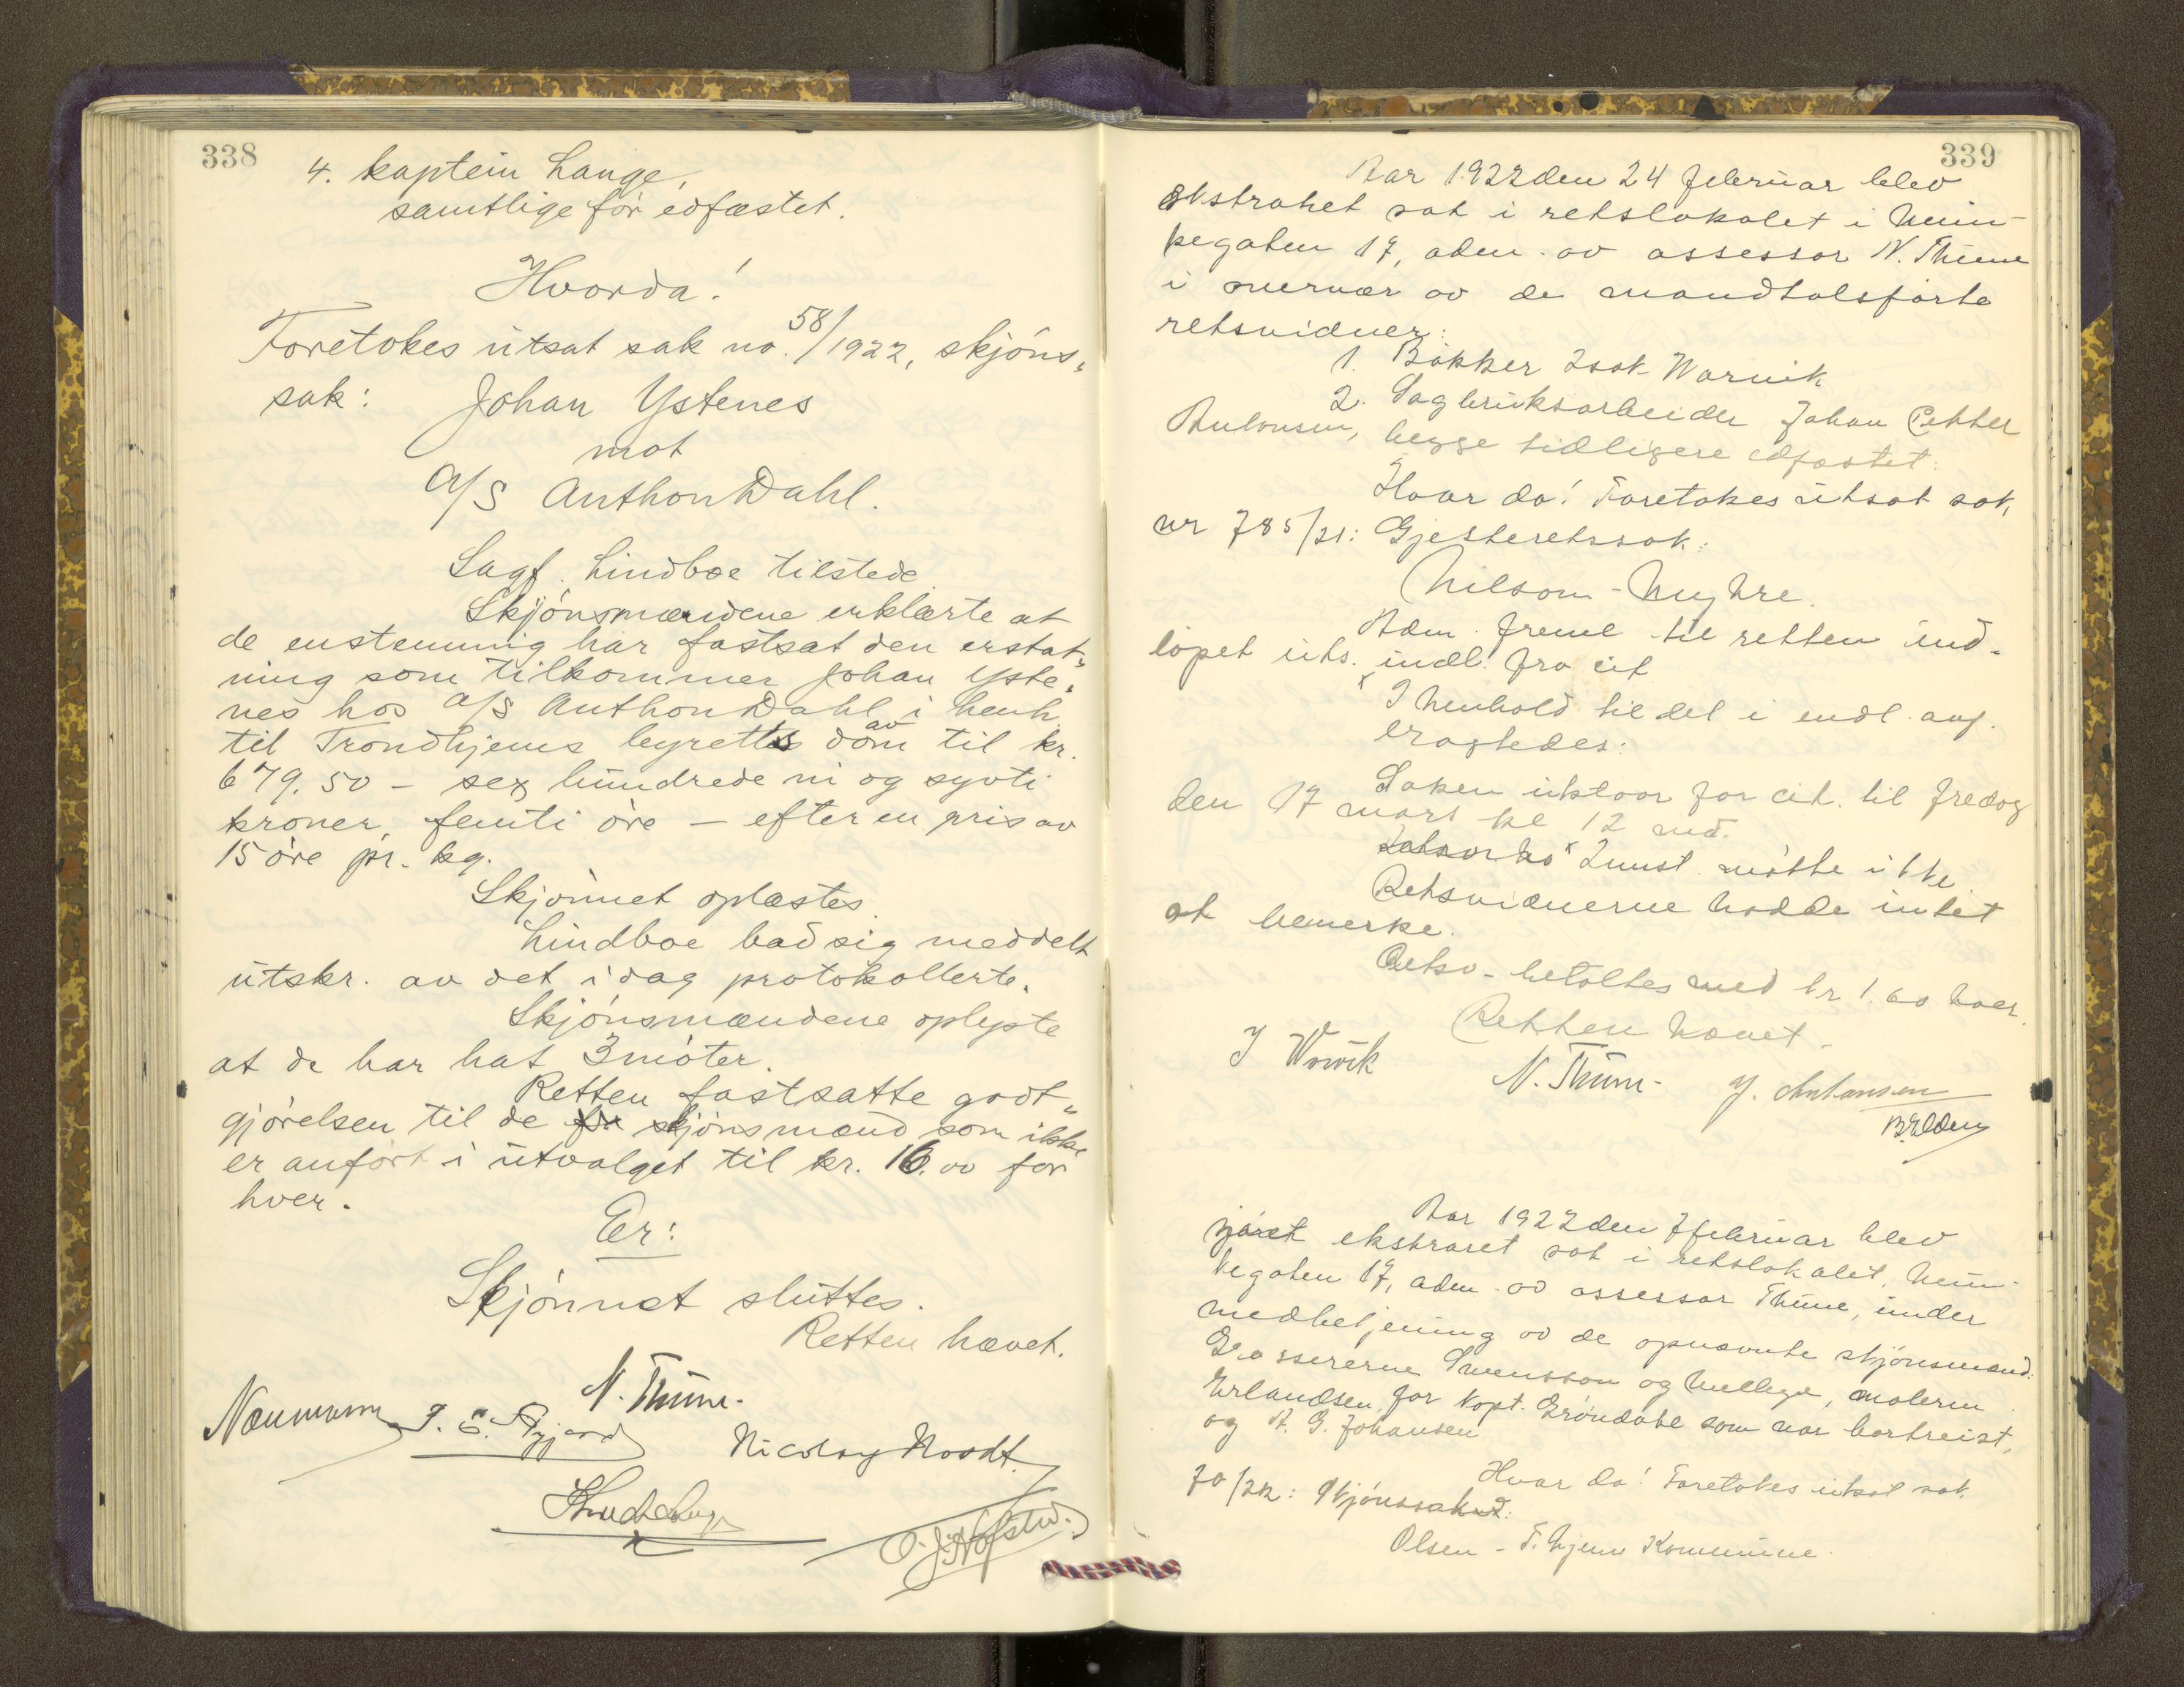 338
4. kaptein Lange,
samtlige før edfæstet.
Hvorda!
Foretokes utsat sak no. 58/1922, skjøns-
sak: Johan Ystenes
mot
A/S Anthon Dahl.
Sagf. Lindboe tilstede.
Skjønsmændene erklærte at
de enstemmig har fastsat den erstat-
ning som tilkommer Johan Yste-
nes hos A/S Anthon Dahl i henh.
til Trondhjems byretts dom av til kr.
679.50 – sex hundrede ni og sytti
kroner, femti øre – efter en pris av
15 øre pr. kg.
Skjønnet oplæstes.
Lindboe bad sig meddelt
utskr. av det idag protokollerte.
Skjønsmændene oplyste
at de har hat 3 møter.
Retten fastsatte godt-
gjørelsen til de skjønsmænd som ikke
er anført i utvalget til kr. 16.00 for
hver.
Er:
Skjønnet sluttes.
Retten hævet.
N. Thume.
Naumann
Nicolay Noodt.
339
Aar 1922 den 24 februar blev
ekstrahet sat i retslokalet i Mun-
kegaten 17, adm. av assessor N. Thume
i nærvær av de mandtalsførte
retsvidner:
1. Bøkker Isak Warvik
2. Sagbruksarbeider Johan Petter
Antonsen, begge tidligere edfæstet.
Hvor da! Foretokes utsat sak
nr 785/21: Gjesteretssak:
Nilsom - Myhre.
Adm. freml. til retten ind-
løpet uts. indl. fra cit
x I henhold til det i indl. anf.
eragtedes:
Saken utstaar for cit. til fredag
den 17 mars kl 12 md.
x Innst. møtte ikke.
Retsvidnerne hadde intet
at bemerke.
Retsv. betaltes med kr 1.60 hver.
Retten hævet.
J Warvik
N. Thume. J. Antonsen
Aar 1922 den 7 februar blev
ekstraret sat i retslokalet, Mun-
kegaten 17, adm. av assessor Thume, under
medbetjening av de opnævnte skjønsmænd:
Grossererne Svensson og Mellbye, maleren
Erlandsen, for kapt. Grøndahl som var bortreist,
og A. G. Johansen
Hvor da! Foretokes utsat sak
70/22: Skjønssak
Olsen - T.hjems Kommune.